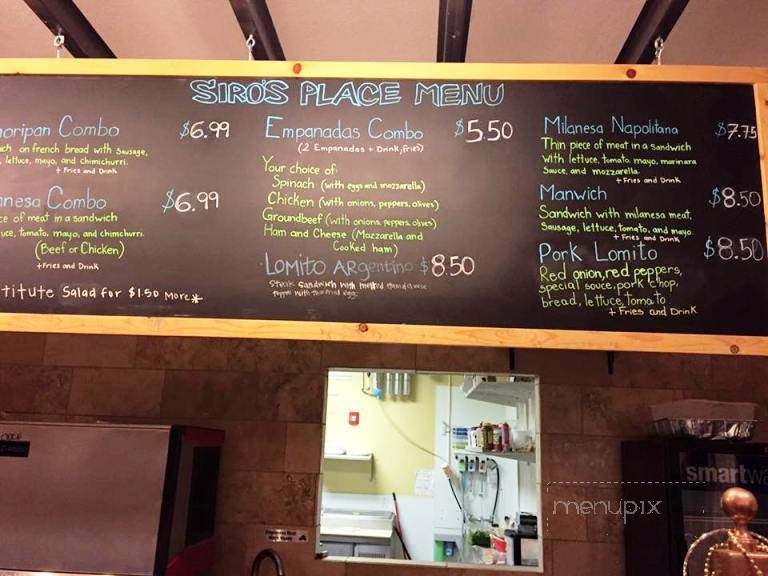 SIRO'S PLACE MENU
oripan Combo $6.99
on french bread with sausage,
lettuce, mayo, and chimichurri.
+ Fries and Drink
nesa Combo $6.99
ce of meat in a sandwich
uce, tomato, mayo, and chimichurri.
(Beef or Chicken)
+Fries and Drink
titute Salad for $1.50 More*
Empanadas Combo $5.50
(2 Empanadas + Drink, Fries)
Your choice of:
Spinach (with eggs and mozzarella)
Chicken (with onions, peppers, olives)
Groundbeef (with onions, peppers, olives)
Ham and Cheese (Mozzarella and
Cooked ham)
Lomito Argentino $8.50
Steak Sandwich with melted
Milanesa Napolitana $7.75
Thin piece of meat in a sandwich
with lettuce, tomato, mayo, marinara
Sauce, and mozzarella.
+ Fries and Drink
Manwich $8.50
Sandwich with milanesa meat,
Sausage, lettuce, tomato, and mayo.
+ Fries and Drink
Pork Lomito $8.50
Red onion, red peppers,
special sauce, pork chop,
bread, lettuce, tomato
+ Fries and Drink
smartwa
menupix